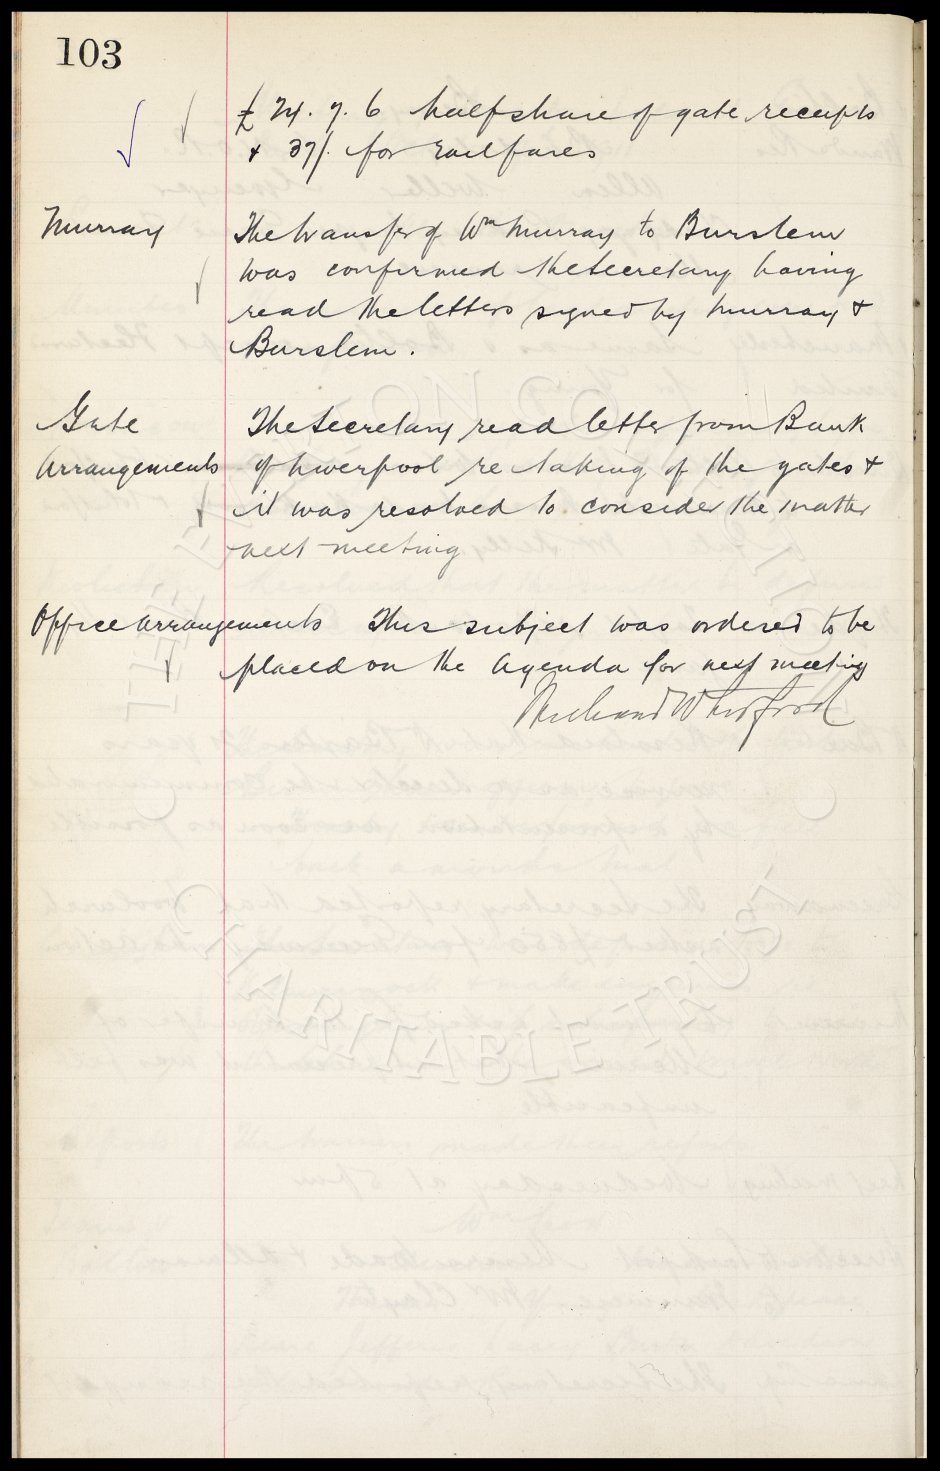 103
£ 24. 7. 6 half share of gate receipts
+ 37/. for railfares
Murray The transfer of Wm Murray to Burslem
was confirmed the Secretary having
read the letters signed by Murray +
Burslem.
Gate The Secretary read letter from Bank
Arrangements of Liverpool re taking of the gates +
it was resolved to consider the matter
next meeting
Office arrangements This subject was ordered to be
placed on the Agenda for next meeting
CHARITABLE TRUST